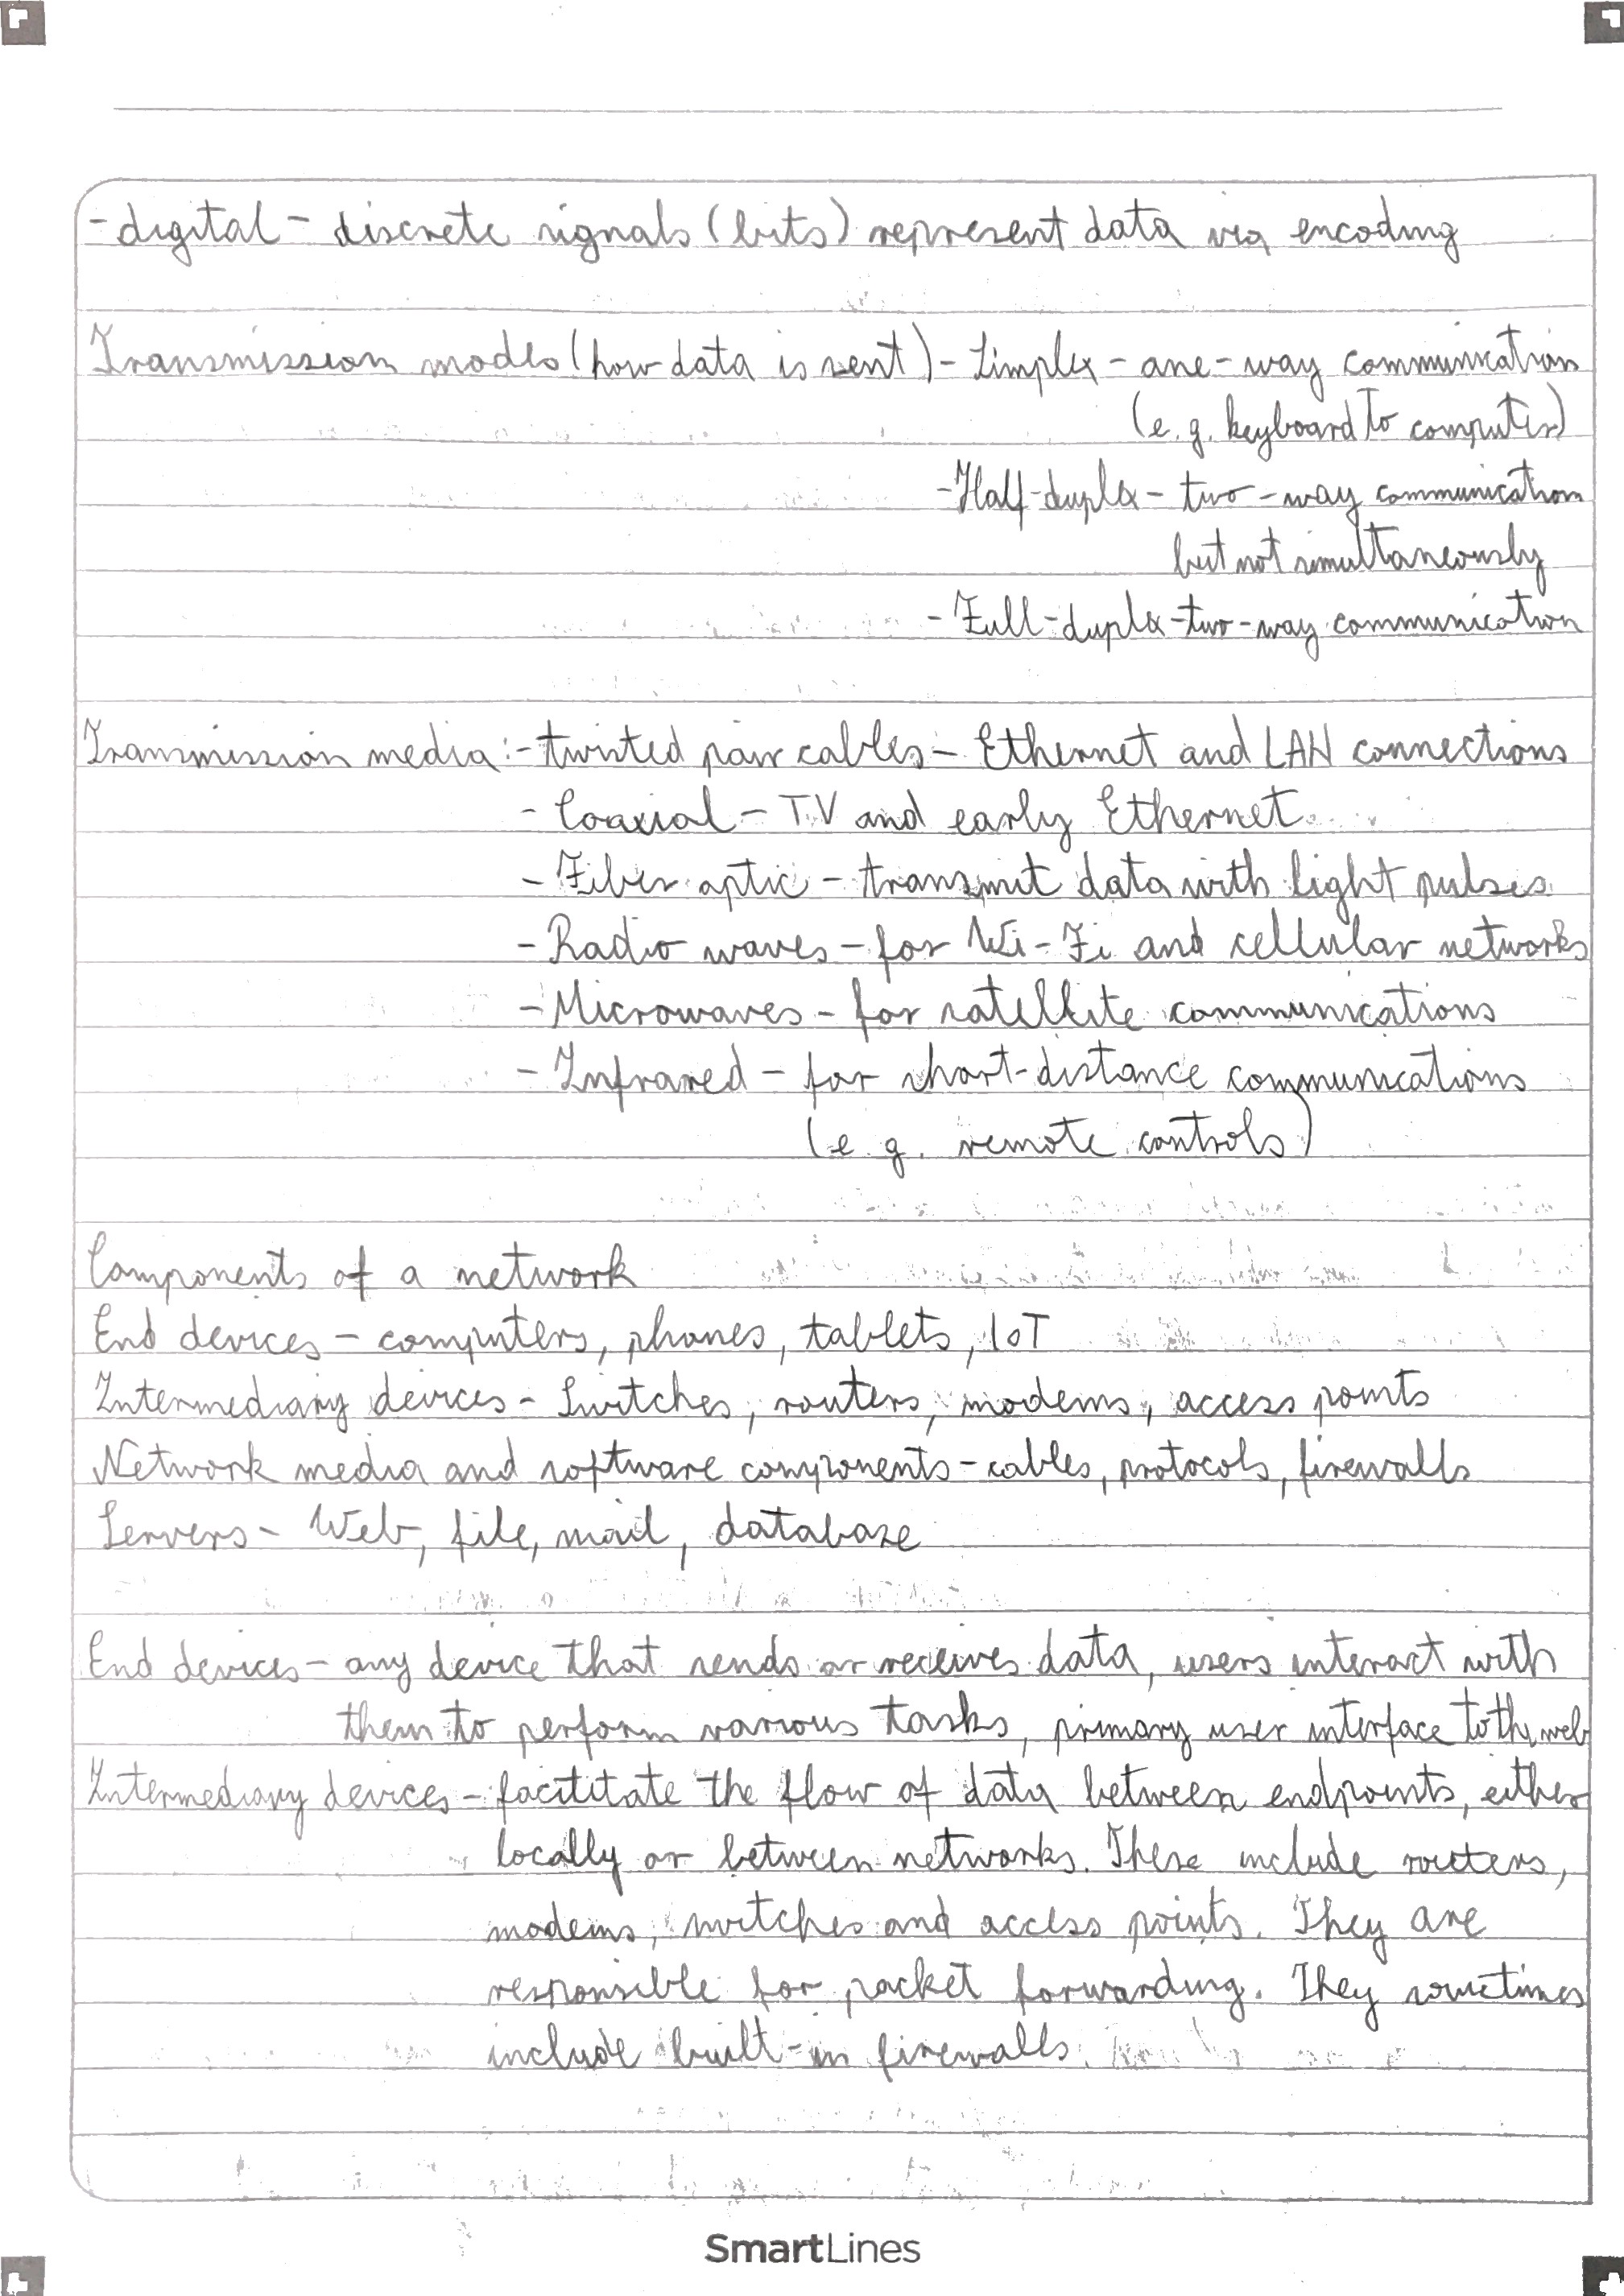 - digital - discrete signals (bits) represent data via encoding
Transmission modes (how data is sent) - Simplex - one-way communication
(e.g. keyboard to computer)
- Half-duplex - two-way communication
but not simultaneously
- Full-duplex - two-way communication
Transmission media: - twisted pair cables - Ethernet and LAN connections
- Coaxial - TV and early Ethernet
- Fiber optic - transmit data with light pulses
- Radio waves - for Wi-Fi and cellular networks
- Microwaves - for satellite communications
- Infrared - for short-distance communications
(e.g. remote controls)
Components of a network
End devices - computers, phones, tablets, IoT
Intermediary devices - Switches, routers, modems, access points
Network media and software components - cables, protocols, firewalls
Servers - Web, file, mail, database
End devices - any device that sends or receives data, users interact with
them to perform various tasks, primary user interface to the web
Intermediary devices - facilitate the flow of data between endpoints, either
locally or between networks. These include routers,
modems, switches and access points. They are
responsible for packet forwarding. They sometimes
include built-in firewalls.
SmartLines